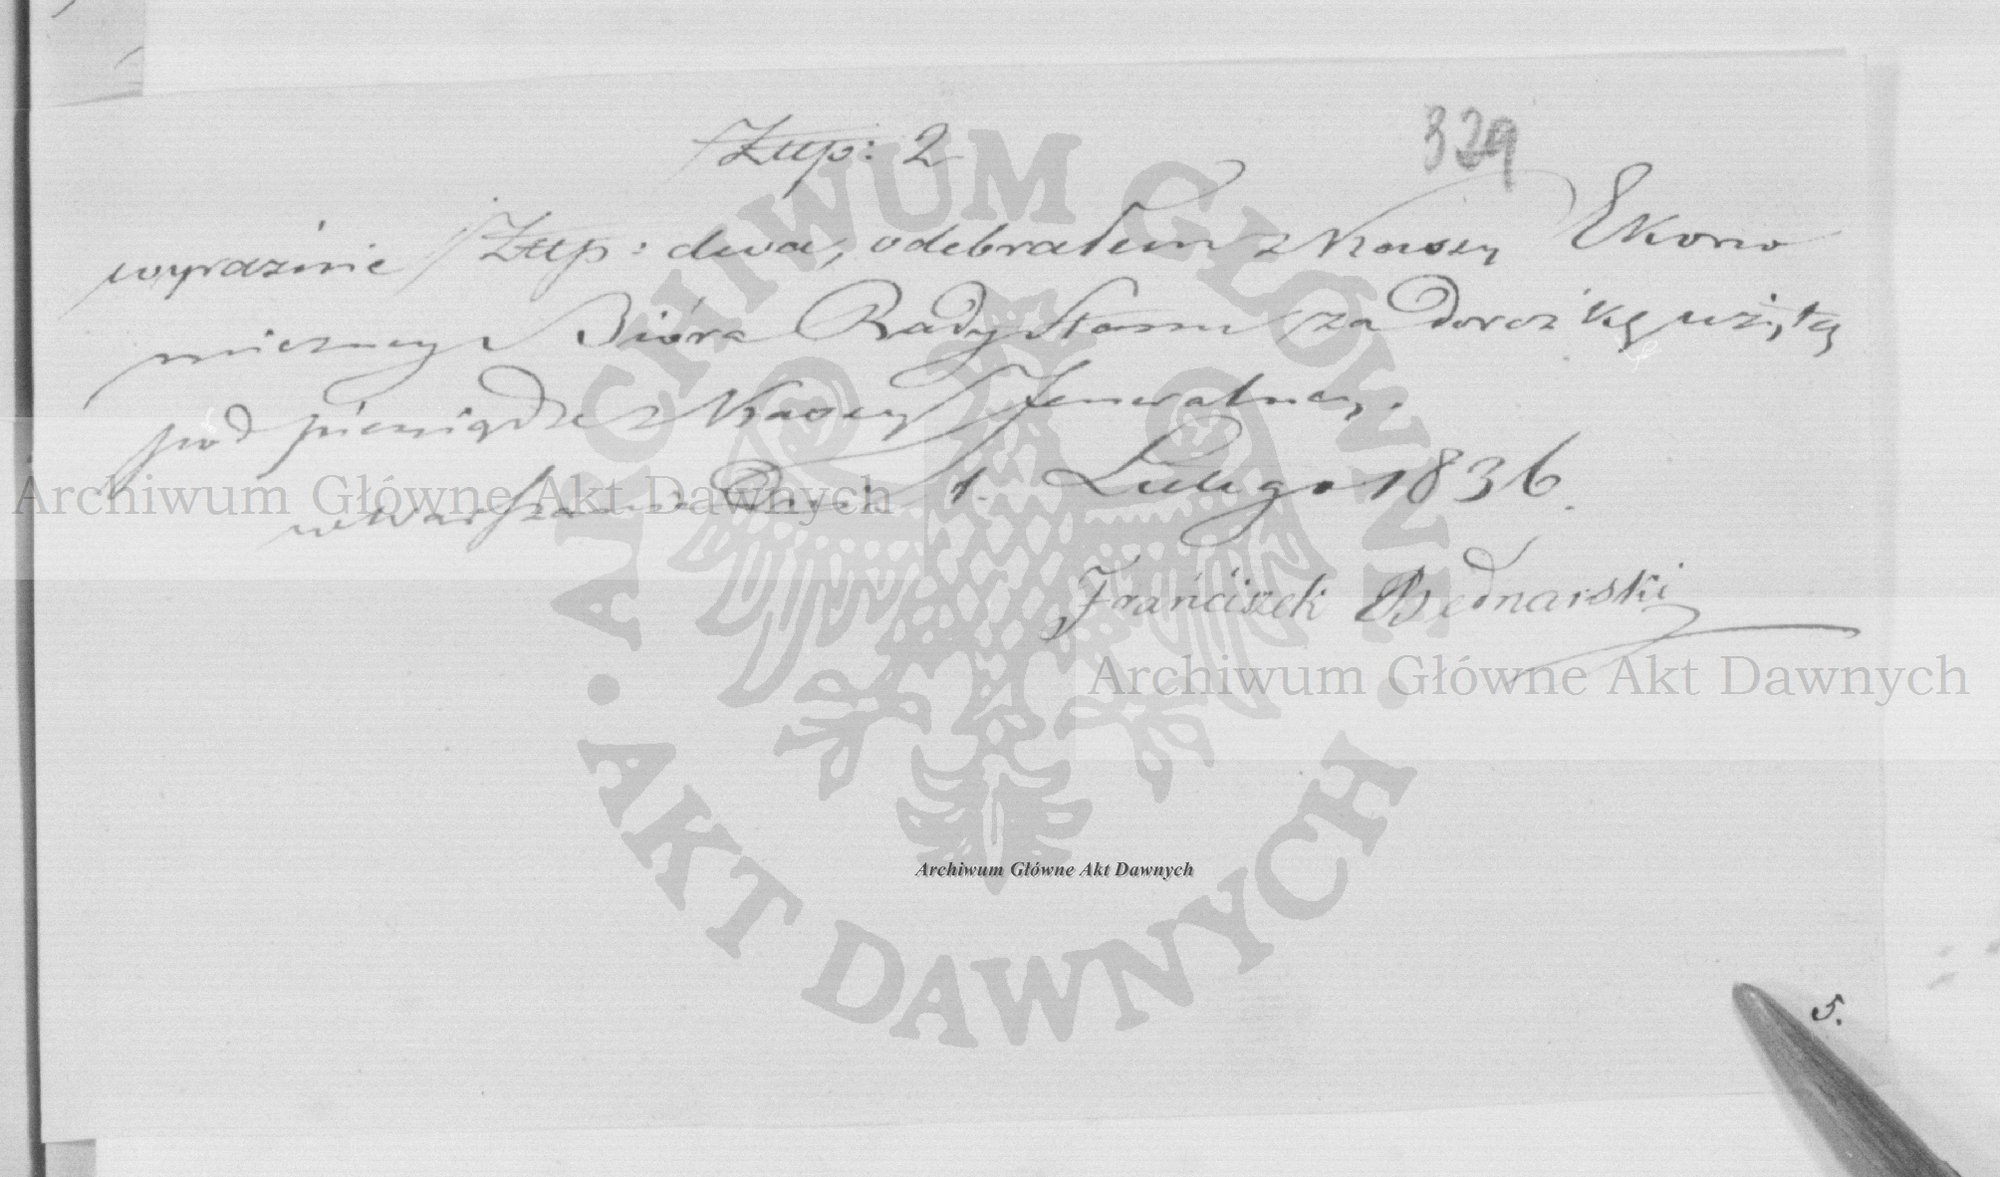 Złłp: 2
329
wyraźnie Złłp: dwa, odebrałem z Kassy Ekono
miczney Bióra Rady Stanu za doroszkę użytą
pod pieniądze z Kassy Jeneralney.
w Warszawie Dnia 1. Lutego 1836.
Franciszek Bednarski
5.
ARCHIWUM GŁÓWNE
AKT DAWNYCH
Archiwum Główne Akt Dawnych
Archiwum Główne Akt Dawnych
Archiwum Główne Akt Dawnych